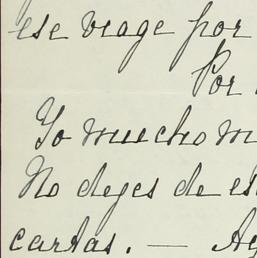 ese viage por
Por
Yo mucho m
No dejes de es
cartas. — Ag